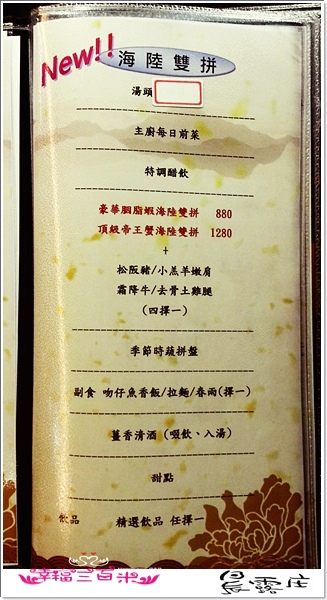 New!!
海陸雙拼
湯頭
主廚每日前菜
特調醋飲
豪華胭脂蝦海陸雙拼 880
頂級帝王蟹海陸雙拼 1280
+
松阪豬/小羔羊嫩肩
霜降牛/去骨土雞腿
(四擇一)
季節時蔬拼盤
副食 吻仔魚香飯/拉麵/春雨(擇一)
薑香清酒 (啜飲、入湯)
甜點
飲品 精選飲品 任擇一
幸福三百米